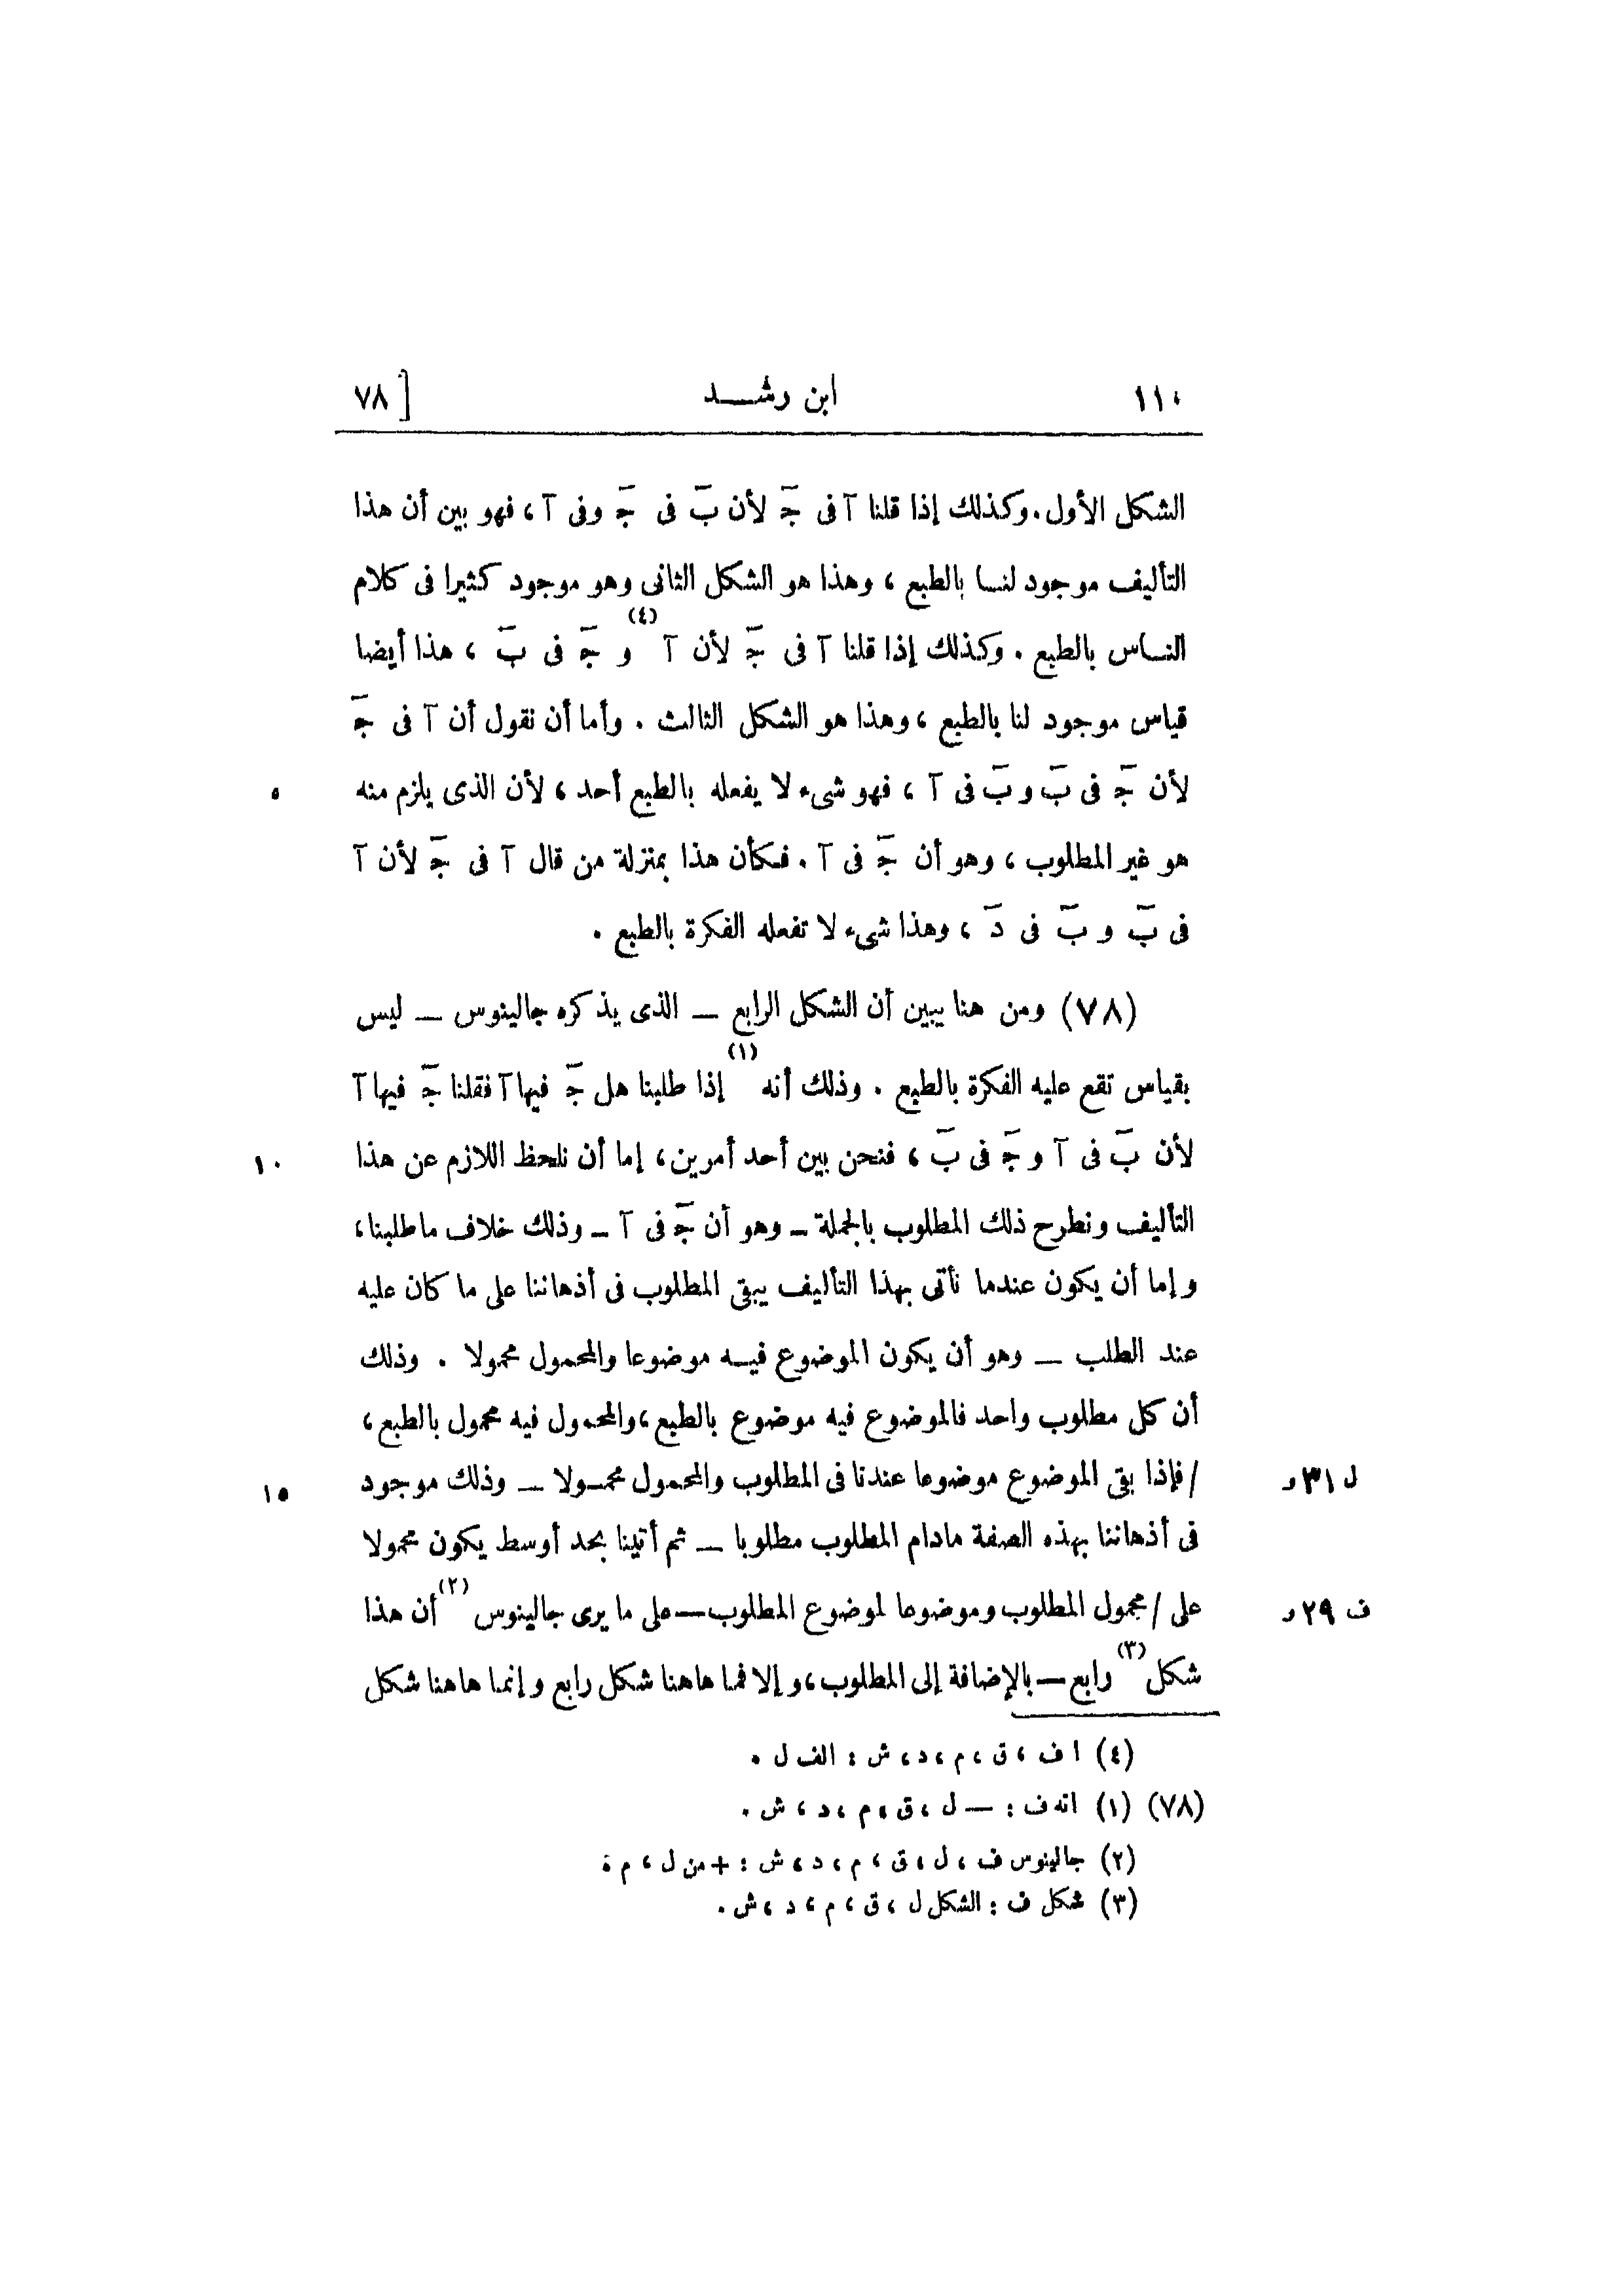 ١١٠ ابن رشد [ ٧٨
الشكل الأول. وكذلك إذا قلنا آ فى جَ لأن بَ فى جَ وفى آ ، فهو بين أن هذا
التأليف موجود لنا بالطبع ، وهذا هو الشكل الثانى وهو موجود كثيرا فى كلام
الناس بالطبع . وكذلك إذا قلنا آ فى جَ لأن آ (٤) و جَ فى بَ ، هذا أيضا
قياس موجود لنا بالطبع ، وهذا هو الشكل الثالث . وأما أن نقول أن آ فى جَ
لأن جَ فى بَ و بَ فى آ ، فهو شىء لا يفعله بالطبع أحد ، لأن الذى يلزم منه ٥
هو غير المطلوب ، وهو أن جَ فى آ . فكأن هذا بمنزلة من قال آ فى جَ لأن آ
فى بَ و بَ فى دَ ، وهذا شىء لا تفعله الفكرة بالطبع .
(٧٨) ومن هنا يبين أن الشكل الرابع — الذى يذكره جالينوس — ليس
بقياس تقع عليه الفكرة بالطبع . وذلك أنه (١) إذا طلبنا هل جَ فيها آ فقلنا جَ فيها آ
لأن بَ فى آ و جَ فى بَ ، فنحن بين أحد أمرين، إما أن نلحظ اللازم عن هذا ١٠
التأليف ونطرح ذلك المطلوب بالجملة — وهو أن جَ فى آ — وذلك خلاف ماطلبنا،
وإما أن يكون عندما نأتى بهذا التأليف يبقى المطلوب فى أذهاننا على ما كان عليه
عند الطلب — وهو أن يكون الموضوع فيه موضوعا والمحمول محمولا . وذلك
أن كل مطلوب واحد فالموضوع فيه موضوع بالطبع، والمحمول فيه محمول بالطبع،
ل ٣١ و / فإذا بقى الموضوع موضوعا عندنا فى المطلوب والمحمول محمولا — وذلك موجود ١٥
فى أذهاننا بهذه الصفة مادام المطلوب مطلوبا — ثم أتينا بحد أوسط يكون محمولا
ف ٢٩ و على / محمول المطلوب وموضوعا لموضوع المطلوب — على ما يرى جالينوس (٢) أن هذا
شكل (٣) رابع — بالإضافة إلى المطلوب، وإلا فما هاهنا شكل رابع وإنما هاهنا شكل
(٤) ا ف ، ق ، م ، د ، ش : الف ل .
(٧٨) (١) انه ف : — ل ، ق ، م ، د ، ش .
(٢) جالينوس ف ، ل ، ق ، م ، د ، ش : + من ل ، م .
(٣) شكل ف : الشكل ل ، ق ، م ، د ، ش .